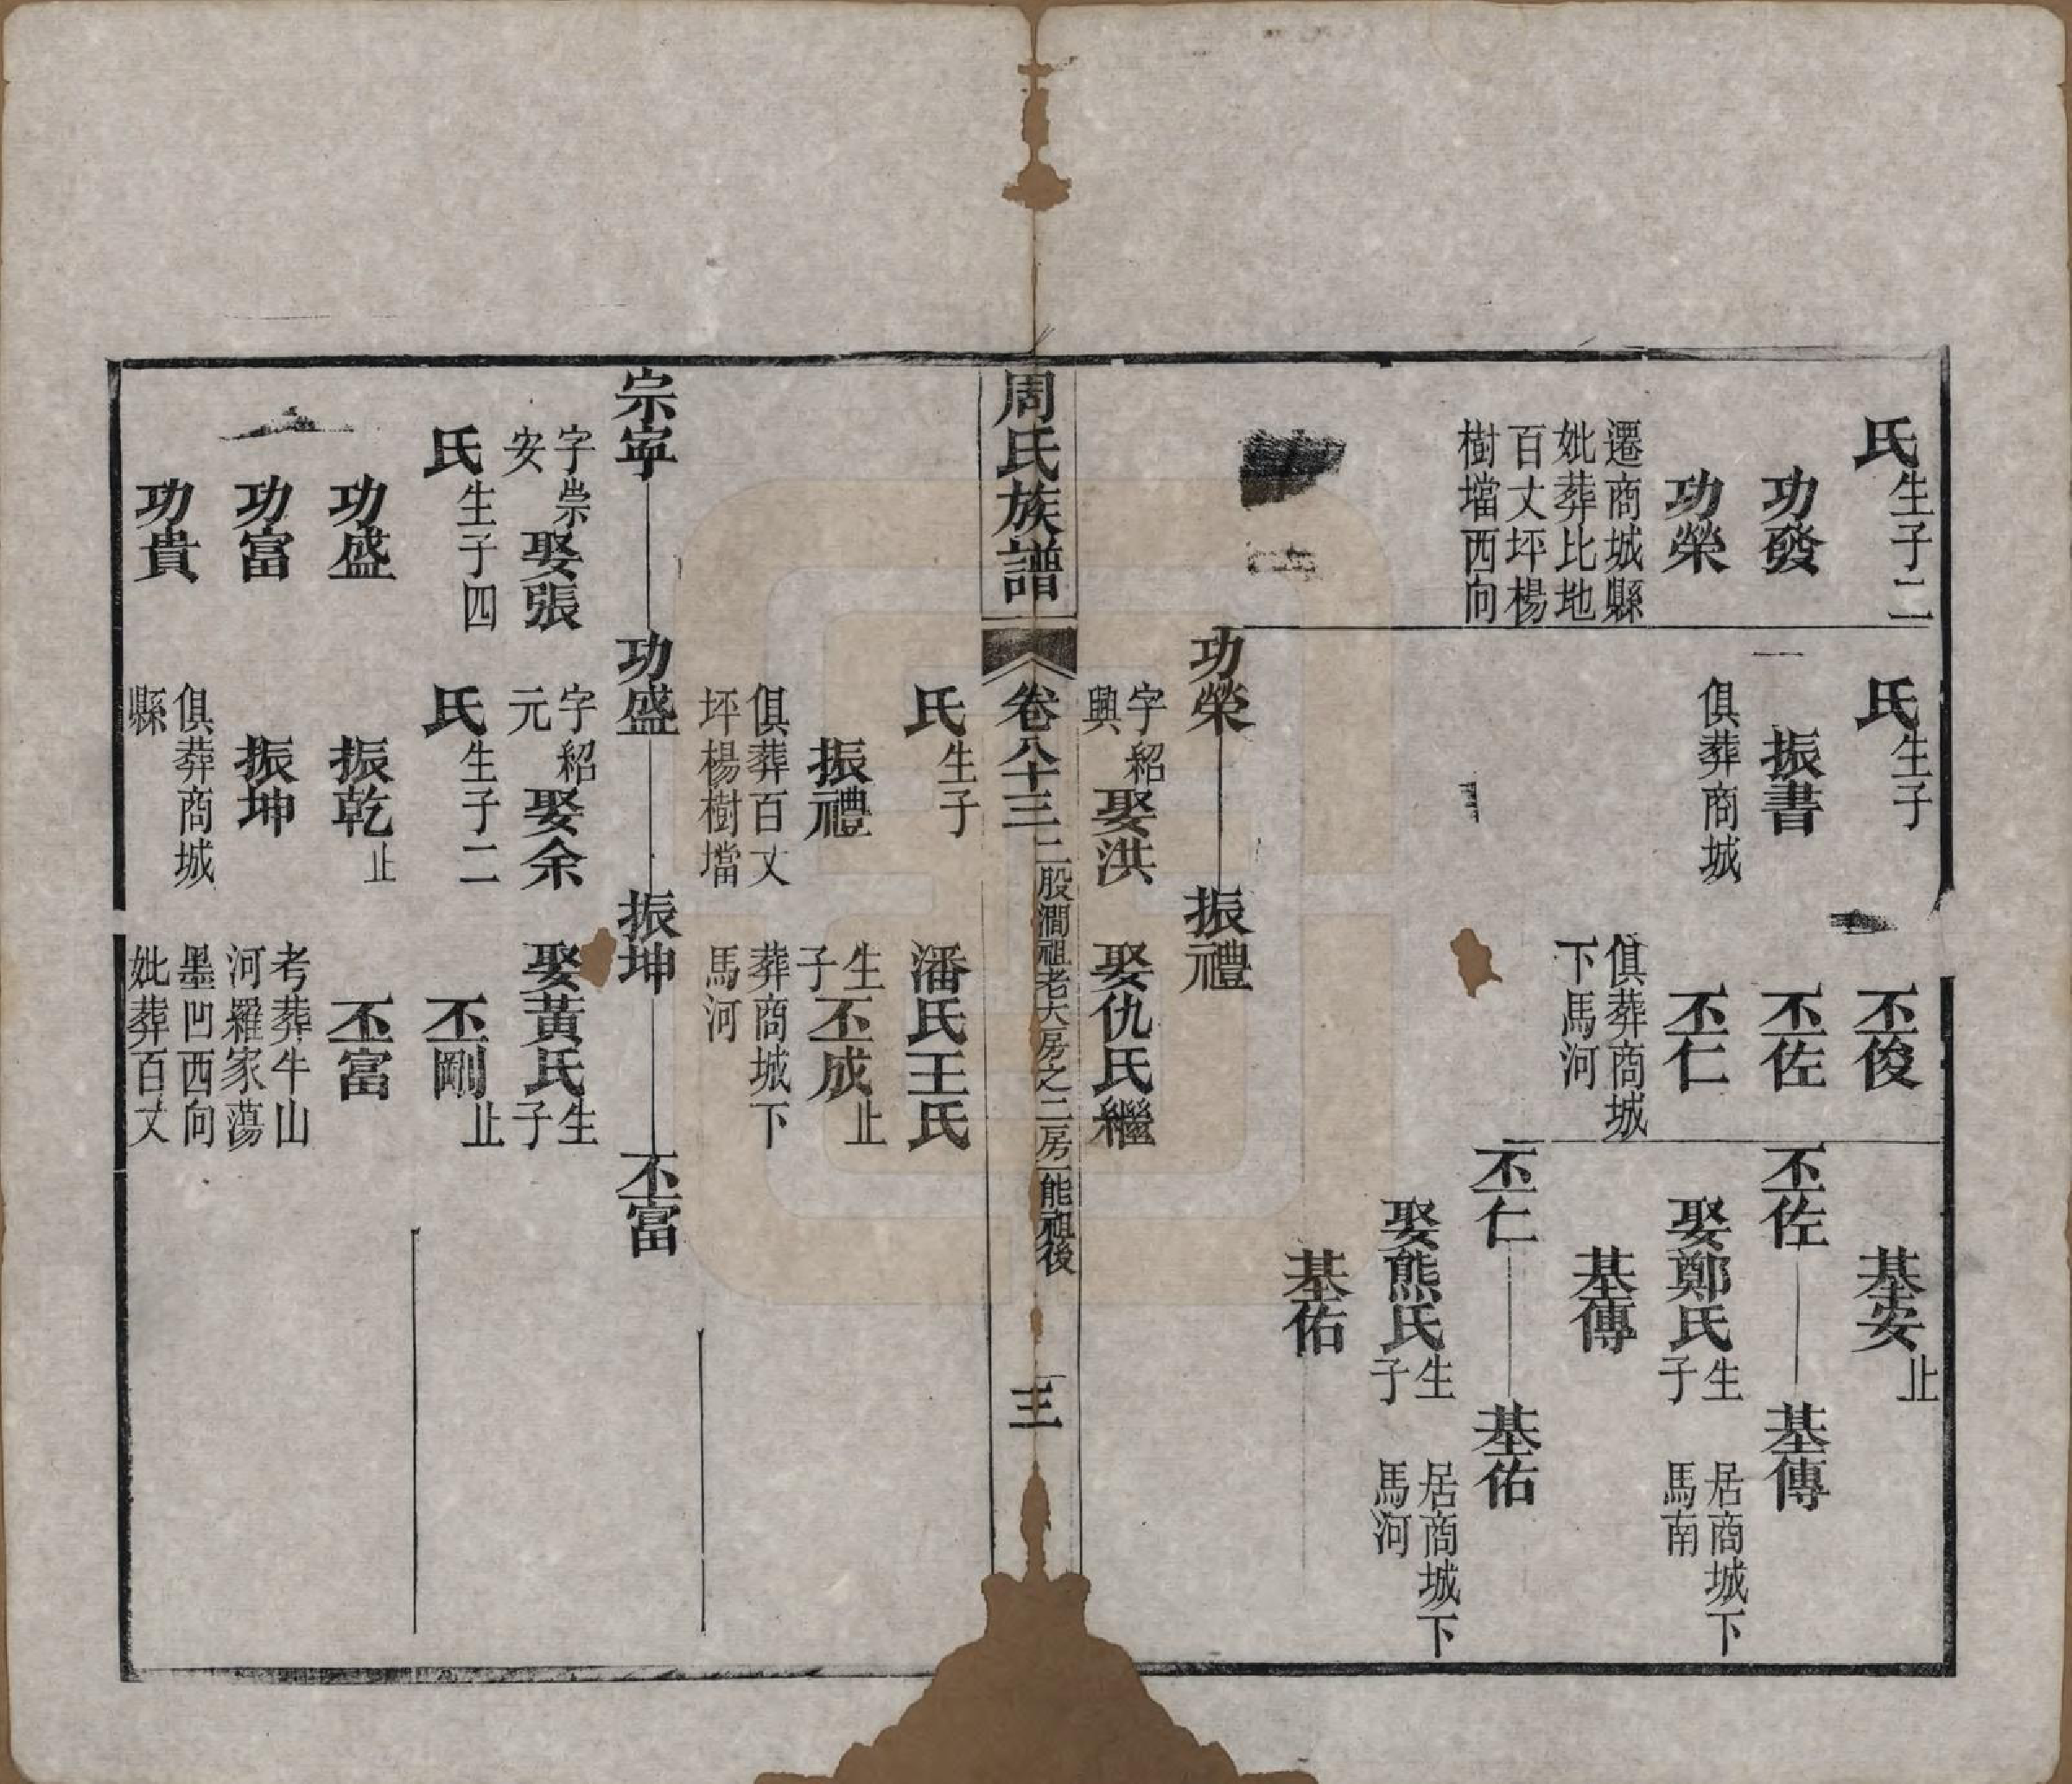 氏生子二
功發
功榮
遷商城縣
妣葬比地
百丈坪楊
樹壋西向
氏生子
振書
俱葬商城
丕俊
丕佐
丕仁
俱葬商城
下馬河
基安止
丕佐
基傳
娶鄭氏生子
居商城下
馬南
基傳
丕仁
基佑
娶熊氏生子
居商城下
馬河
基佑
功榮
振禮
字紹興娶洪
娶仇氏繼
周氏族譜
卷八十三
二股澗祖老大房之二房一能祖後
三
氏生子
潘氏王氏
振禮
生子丕成止
俱葬百丈
坪楊樹壋
葬商城下
馬河
宗寜
功盛
振坤
丕富
字崇安娶張
字紹元娶余
娶黃氏生子
氏生子四
氏生子二
丕剛止
功盛
振乾止
丕富
功富
振坤
考葬牛山
河羅家蕩
墨凹西向
妣葬百丈
功貴
俱葬商城
縣